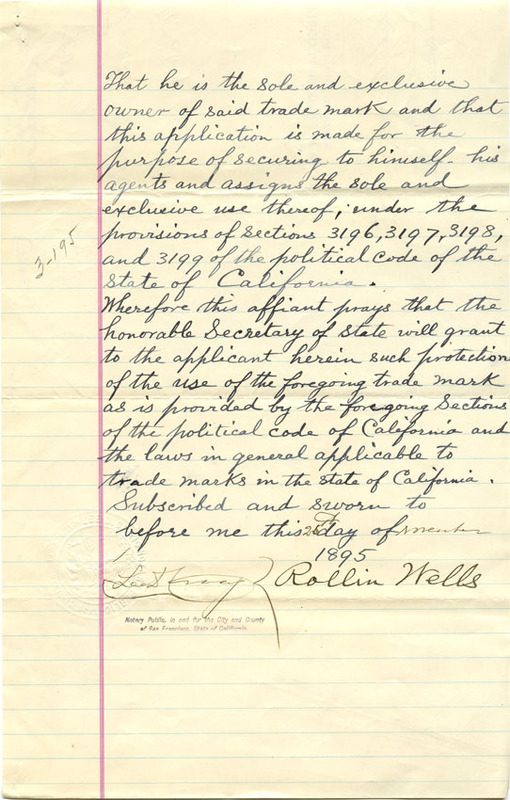 That he is the sole and exclusive
owner of said trade mark and that
this application is made for the
purpose of securing to himself his
agents and assigns the sole and
exclusive use thereof; under the
provisions of Sections 3196, 3197, 3198,
and 3199 of the political code of the
State of California.
3-195
Wherefore this affiant prays that the
honorable Secretary of State will grant
to the applicant herein such protection
of the use of the foregoing trade mark
as is provided by the foregoing Sections
of the political code of California and
the laws in general applicable to
trade marks in the state of California.
Subscribed and sworn to
before me this day of November
1895
Rollin Wells
Notary Public, in and for the City and County
of San Francisco, State of California